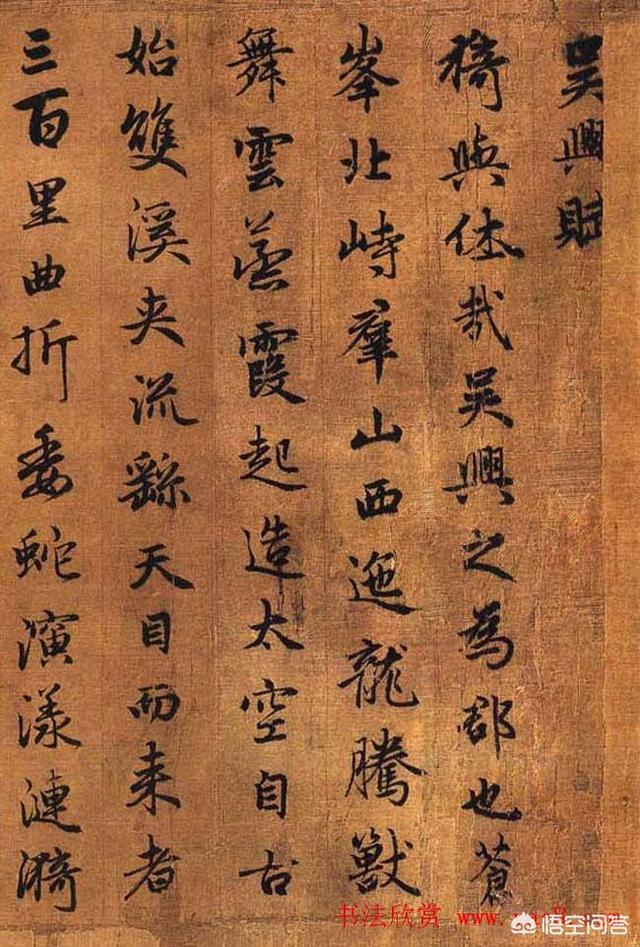 吳興賦
猗與休哉吳興之為郡也蒼
峯北峙羣山西迤龍騰獸
舞雲蒸霞起造太空自古
始雙溪夾流繇天目而来者
三百里曲折委蛇演漾漣漪
书法欣赏
悟空问答